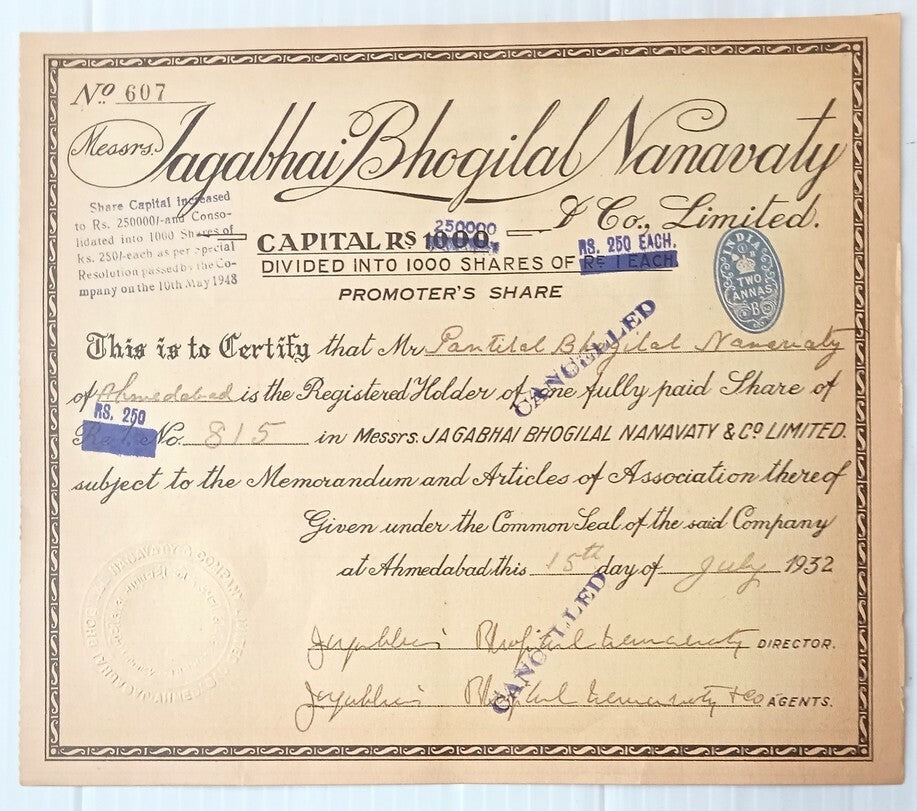 No. 607
Messrs. Jagabhai Bhogilal Nanavaty
& Co., Limited.
Share Capital increased
to Rs. 250000/- and Conso-
lidated into 1000 Shares of
Rs. 250/- each as per Special
Resolution passed by the Co-
mpany on the 10th May 1948
250000
CAPITAL RS 1000
RS. 250 EACH.
DIVIDED INTO 1000 SHARES OF RE 1 EACH
PROMOTER'S SHARE
INDIA
TWO
ANNAS
B
This is to Certify that Mr Bhogilal Nanavaty
of Ahmedabad is the Registered Holder of one fully paid Share of
RS. 250
Re 1. No. 815 in Messrs. JAGABHAI BHOGILAL NANAVATY & CO LIMITED.
subject to the Memorandum and Articles of Association thereof
CANCELLED
Given under the Common Seal of the said Company
at Ahmedabad this 15th day of July 1932
Jagabhai Bhogilal Nanavaty DIRECTOR.
CANCELLED
Jagabhai Bhogilal Nanavaty & Co AGENTS.